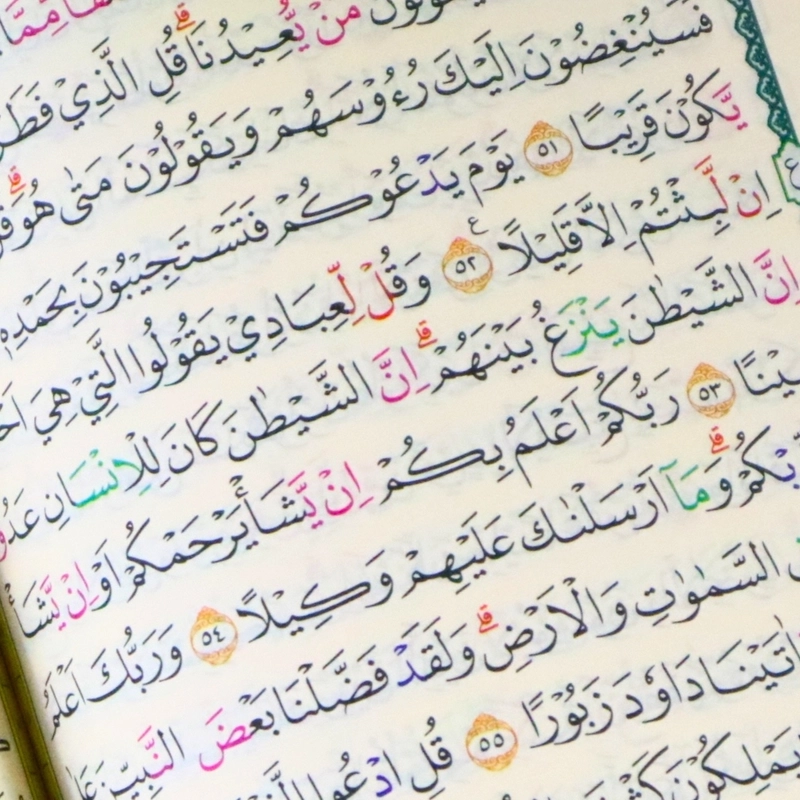 مَنْ يُّعِيْدُنَاۗ قُلِ الَّذِيْ فَطَرَ
فَسَيُنْغِضُوْنَ اِلَيْكَ رُءُوْسَهُمْ وَيَقُوْلُوْنَ مَتٰى هُوَۗ
يَّكُوْنَ قَرِيْبًا ٥١ يَوْمَ يَدْعُوْكُمْ فَتَسْتَجِيْبُوْنَ بِحَمْدِهٖ
اِنْ لَّبِثْتُمْ اِلَّا قَلِيْلًا ٥٢ ع وَقُلْ لِّعِبَادِيْ يَقُوْلُوا الَّتِيْ هِيَ
اِنَّ الشَّيْطٰنَ يَنْزَغُ بَيْنَهُمْۗ اِنَّ الشَّيْطٰنَ كَانَ لِلْاِنْسَانِ عَدُوًّا
٥٣ رَبُّكُمْ اَعْلَمُ بِكُمْ اِنْ يَّشَأْ يَرْحَمْكُمْ اَوْ اِنْ يَّشَأْ
وَمَآ اَرْسَلْنٰكَ عَلَيْهِمْ وَكِيْلًا ٥٤ وَرَبُّكَ اَعْلَمُ
السَّمٰوٰتِ وَالْاَرْضِۗ وَلَقَدْ فَضَّلْنَا بَعْضَ النَّبِيّٖنَ
اٰتَيْنَا دَاوٗدَ زَبُوْرًا ٥٥ قُلِ ادْعُوا
يَمْلِكُوْنَ